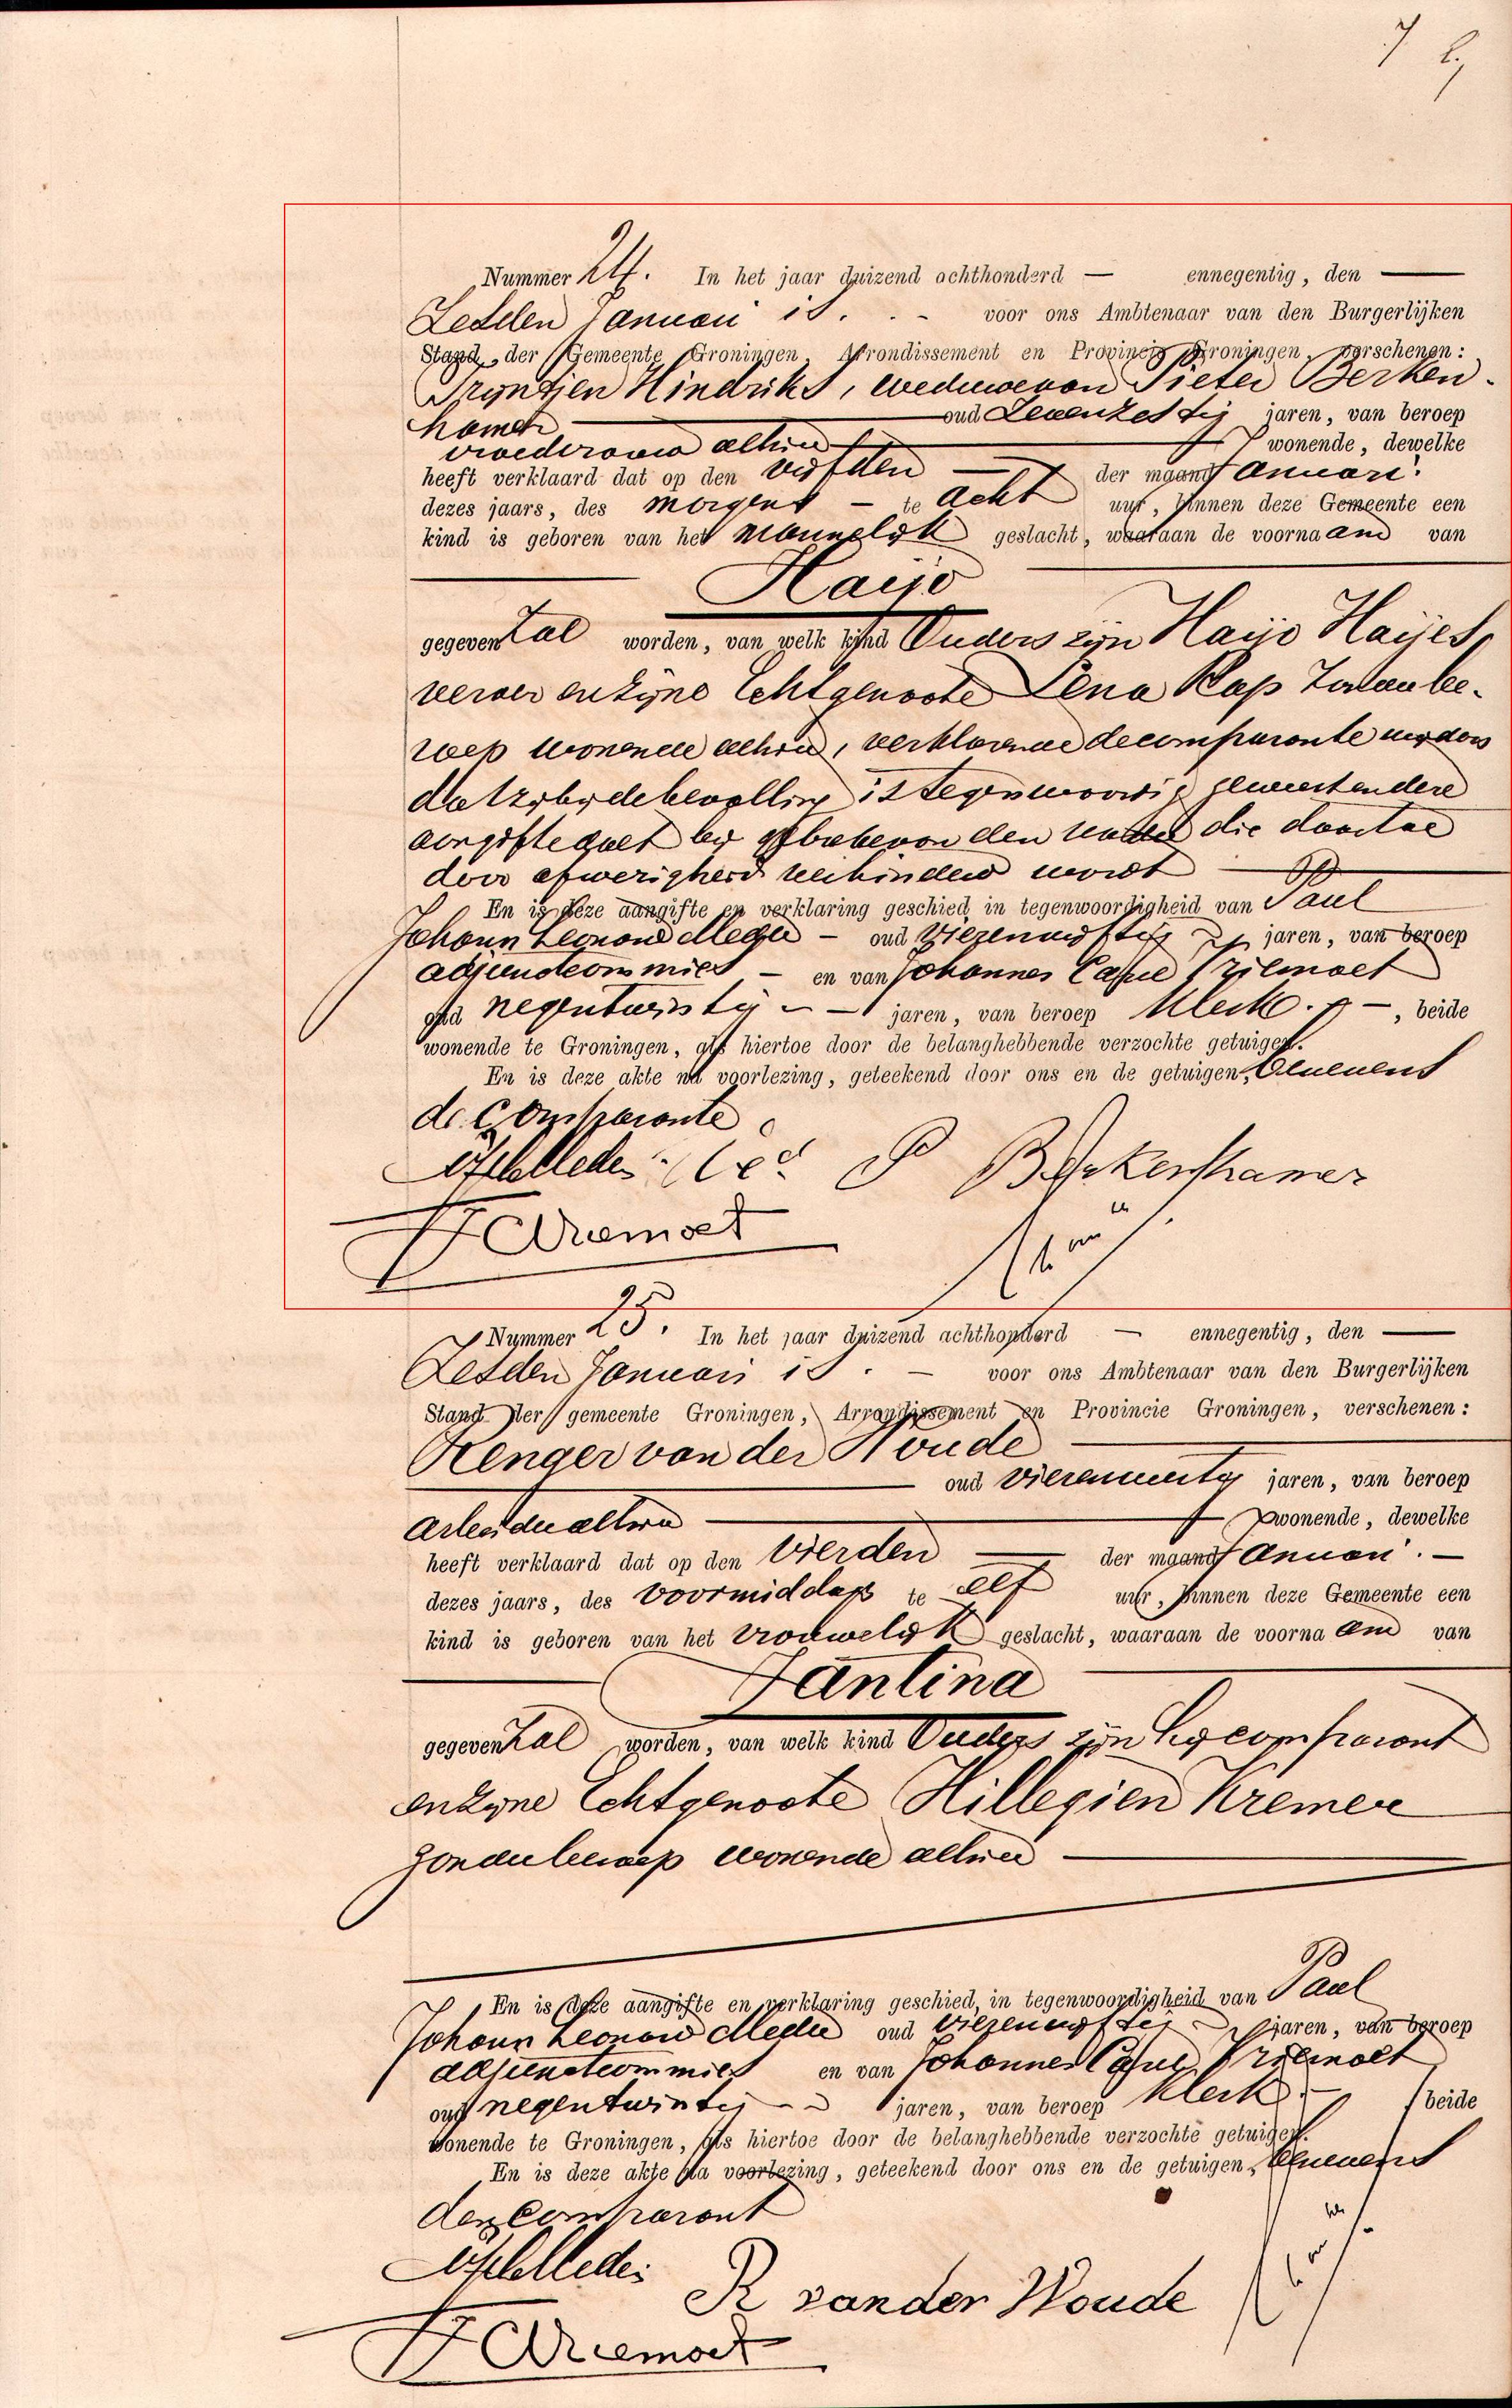 7
Nummer 24. In het jaar duizend achthonderd — ennegentig, den —
Zesden Januari is. - voor ons Ambtenaar van den Burgerlijken
Stand, der Gemeente Groningen, Arrondissement en Provincie Groningen, verschenen:
Trijntjen Hindriks, weduwe van Pieter Berken-
hamer oud Zevenzestig jaren, van beroep
vroedvrouw alhier wonende, dewelke
heeft verklaard dat op den vijfden — der maand Januari.
dezes jaars, des morgens – te acht uur, binnen deze Gemeente een
kind is geboren van het mannelijk geslacht, waaraan de voornaam van
Haijo
gegeven zal worden, van welk kind Ouders zijn Haijo Haijes,
verver en zijne Echtgenoote Lena Kap zonder be-
roep wonende alhier, verklarende de comparante verders
dat zij bij de bevalling is tegenwoordig geweest en deze
aangifte doet bij gebreke van den vader die daartoe
door afwezigheid verhinderd wordt
En is deze aangifte en verklaring geschied in tegenwoordigheid van Paul
Johann Leonard – oud vierenvijftig jaren, van beroep
adjunctcommies – en van Johannes Carel Vriemoet
oud negentwintig – jaren, van beroep klerk. –, beide
wonende te Groningen, als hiertoe door de belanghebbende verzochte getuigen.
En is deze akte na voorlezing, geteekend door ons en de getuigen, benevens
de comparante
P Berkenhamer
JC Vriemoet
Nummer 25. In het jaar duizend achthonderd — ennegentig, den —
Zesden Januari is. – voor ons Ambtenaar van den Burgerlijken
Stand der gemeente Groningen, Arrondissement en Provincie Groningen, verschenen:
Renger van der Woude
oud vierenveertig jaren, van beroep
arbeider alhier wonende, dewelke
heeft verklaard dat op den vierden — der maand Januari. –
dezes jaars, des voormiddags te elf uur, binnen deze Gemeente een
kind is geboren van het vrouwelijk geslacht, waaraan de voornaam van
Jantina
gegeven zal worden, van welk kind Ouders zijn hij comparant
en zijne Echtgenoote Hillegien Kremer
zonder beroep wonende alhier
En is deze aangifte en verklaring geschied, in tegenwoordigheid van Paul
Johann Leonard oud vierenvijftig jaren, van beroep
adjunctcommies en van Johannes Carel Vriemoet
oud negentwintig – jaren, van beroep klerk – beide
wonende te Groningen, als hiertoe door de belanghebbende verzochte getuigen.
En is deze akte na voorlezing, geteekend door ons en de getuigen, benevens
den comparant
R van der Woude
JC Vriemoet